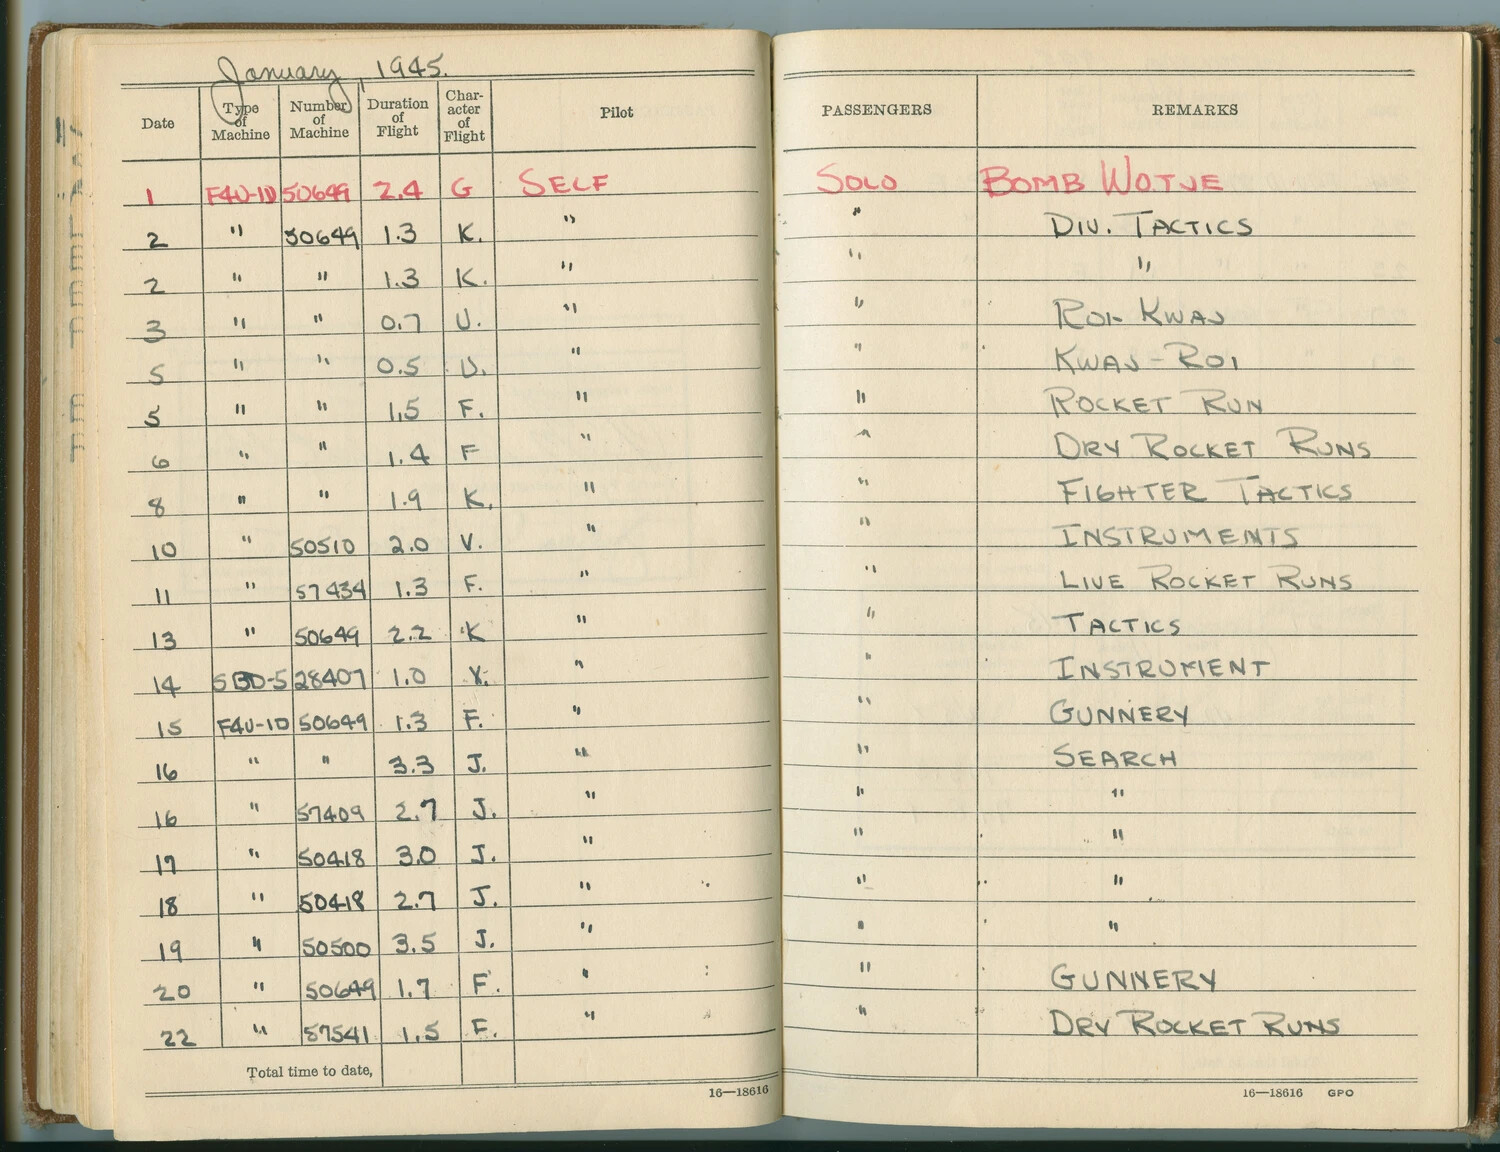 January, 1945.
Date Type of Machine Number of Machine Duration of Flight Char-acter of Flight Pilot PASSENGERS REMARKS
1 F4U-1D 50649 2.4 G SELF SOLO BOMB WOTJE
2 " 50649 1.3 K. " " DIV. TACTICS
2 " " 1.3 K. " " "
3 " " 0.7 U. " " ROI-KWAJ
5 " " 0.5 U. " " KWAJ-ROI
5 " " 1.5 F. " " ROCKET RUN
6 " " 1.4 F " " DRY ROCKET RUNS
8 " " 1.9 K. " " FIGHTER TACTICS
10 " 50510 2.0 V. " " INSTRUMENTS
11 " 57434 1.3 F. " " LIVE ROCKET RUNS
13 " 50649 2.2 K " " TACTICS
14 SBD-5 28407 1.0 Y. " " INSTRUMENT
15 F4U-1D 50649 1.3 F. " " GUNNERY
16 " " 3.3 J. " " SEARCH
16 " 57409 2.7 J. " " "
17 " 50418 3.0 J. " " "
18 " 50418 2.7 J. " " "
19 " 50500 3.5 J. " " "
20 " 50649 1.7 F. " " GUNNERY
22 " 57541 1.5 F. " " DRY ROCKET RUNS
Total time to date,
16—18616
16—18616 GPO